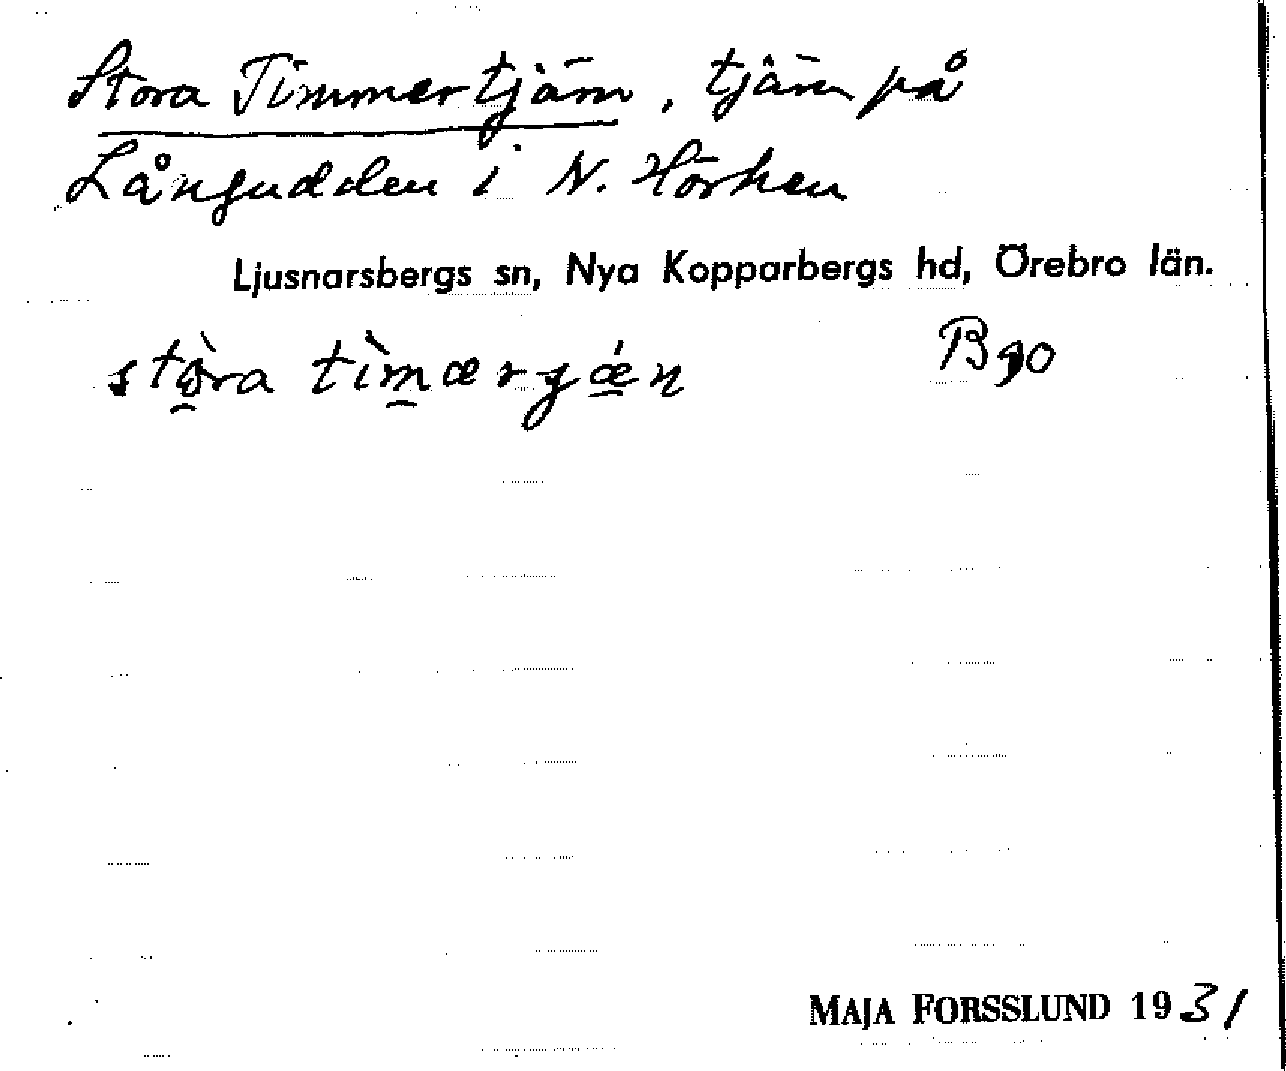 Stora Timmertjärn, tjärn på
Långudden i N. Hörken
Ljusnarsbergs sn, Nya Kopparbergs hd, Örebro län.
stòra tìmærgǽn B90
MAJA FORSSLUND 1931